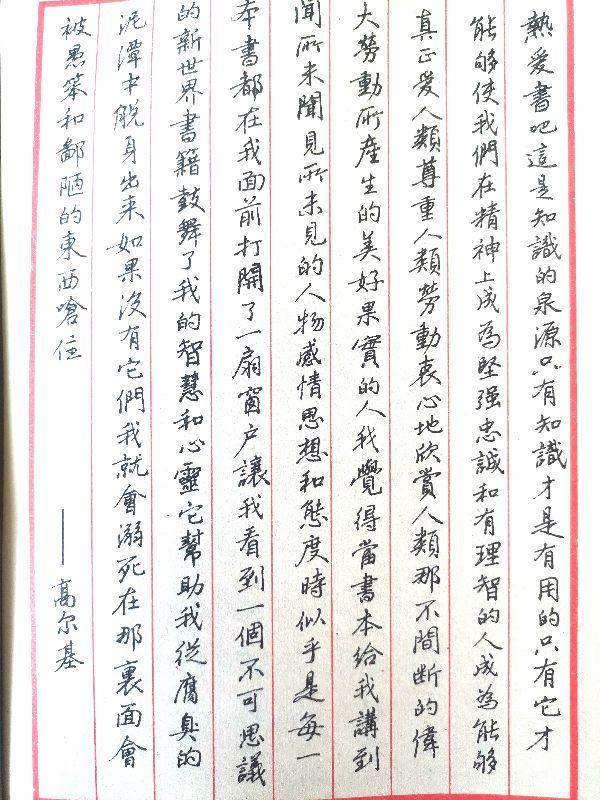 熱愛書吧這是知識的泉源只有知識才是有用的只有它才
能够使我們在精神上成為堅强忠誠和有理智的人成為能够
真正愛人類尊重人類勞動衷心地欣賞人類那不間斷的偉
大勞動所産生的美好果實的人我覺得當書本給我講到
聞所未聞見所未見的人物感情思想和態度時似乎是每一
本書都在我面前打開了一扇窗户讓我看到一個不可思議
的新世界書籍鼓舞了我的智慧和心靈它幫助我從腐臭的
泥潭中脱身出来如果没有它們我就會溺死在那裏面會
被愚笨和鄙陋的東西嗆住
——高尔基